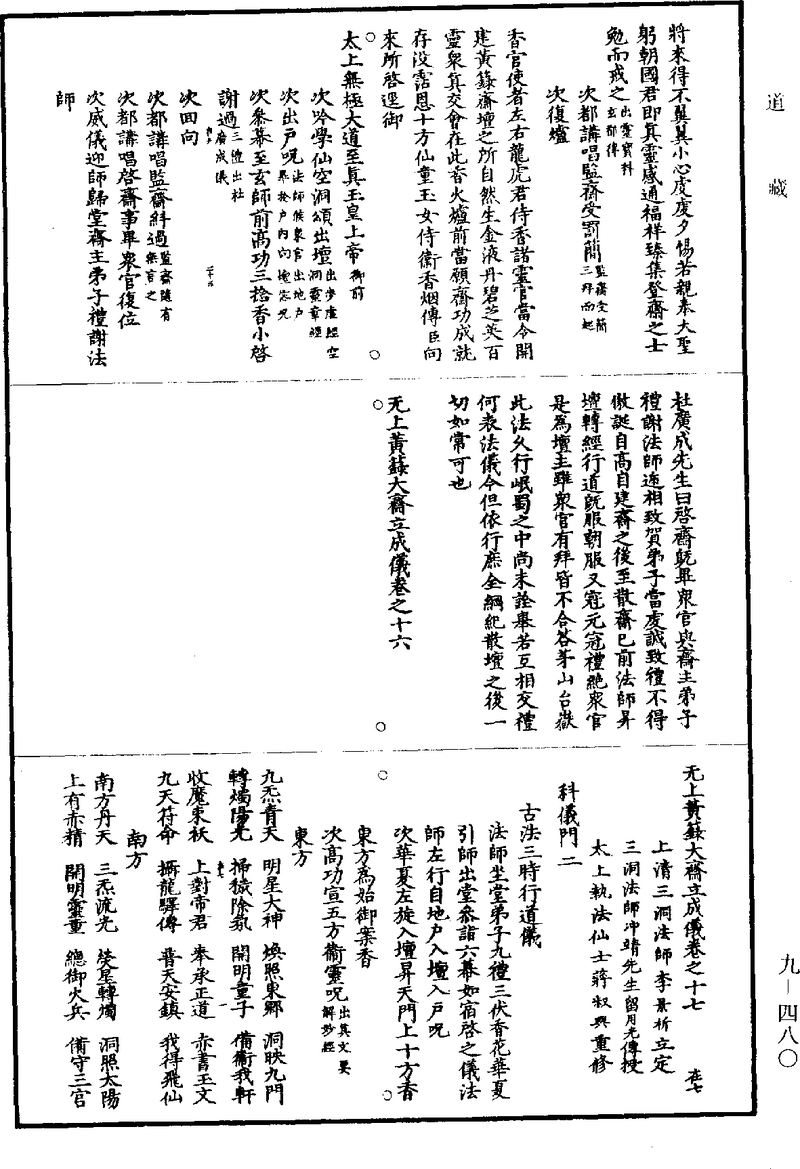 道藏
將來得不翼翼小心虔虔夕惕若親奉大聖
躬朝國君即真靈感通福祥臻集登齋之士
勉而戒之出靈寶科玄都律
次都講唱監齋受罰簡監齋受簡三拜而起
次復爐
香官使者左右龍虎君侍香諸靈官當令開
建黃籙齋壇之所自然生金液丹碧芝英百
靈眾真交會在此香火爐前當願齋功成就
存沒霑恩十方仙童玉女侍衛香烟傳臣向
來所啓逕御
太上無極大道至真玉皇上帝御前
次吟學仙空洞頌出壇出步虛經空洞靈章經
次出戶呪法師候眾官出地戶畢於戶內向壇密呪
次叅幕至玄師前高功三捻香小啓
謝過三禮出杜廣成儀
次回向
次都講唱監齋糾過監齋隨有無言之
次都講唱啓齋事畢眾官復位
次威儀迎師歸堂齋主弟子禮謝法
師
杜廣成先生曰啓齋既畢眾官與齋主弟子
禮謝法師遞相致賀弟子當虔誠致禮不得
傲誕自高自建齋之後至散齋已前法師昇
壇轉經行道既服朝服又冠元冠禮絕眾官
是為壇主雖眾官有拜皆不合答茅山台嶽
此法久行岷蜀之中尚未詮舉若互相交禮
何表法儀今但依行庶全綱紀散壇之後一
切如常可也
无上黃籙大齋立成儀卷之十六
无上黃籙大齋立成儀卷之十七
上清三洞法師李景祈立定
三洞法師冲靖先生留用光傳授
太上執法仙士蔣叔輿重修
科儀門二
古法三時行道儀
法師坐堂弟子九禮三伏香花華夏
引師出堂叅詣六幕如宿啓之儀法
師左行自地戶入壇入戶呪
次華夏左旋入壇昇天門上十方香
東方為始御案香
次高功宣五方衛靈呪出其文要解抄經
東方
九炁青天 明星大神 煥照東鄉 洞映九門
轉燭陽光 掃穢除氛 開明童子 備衛我軒
收魔束祅 上對帝君 奉承正道 赤書玉文
九天符命 攝龍驛傳 普天安鎮 我得飛仙
南方
南方丹天 三炁流光 熒星轉燭 洞照太陽
上有赤精 開明靈童 總御火兵 備守三官
九—四八〇